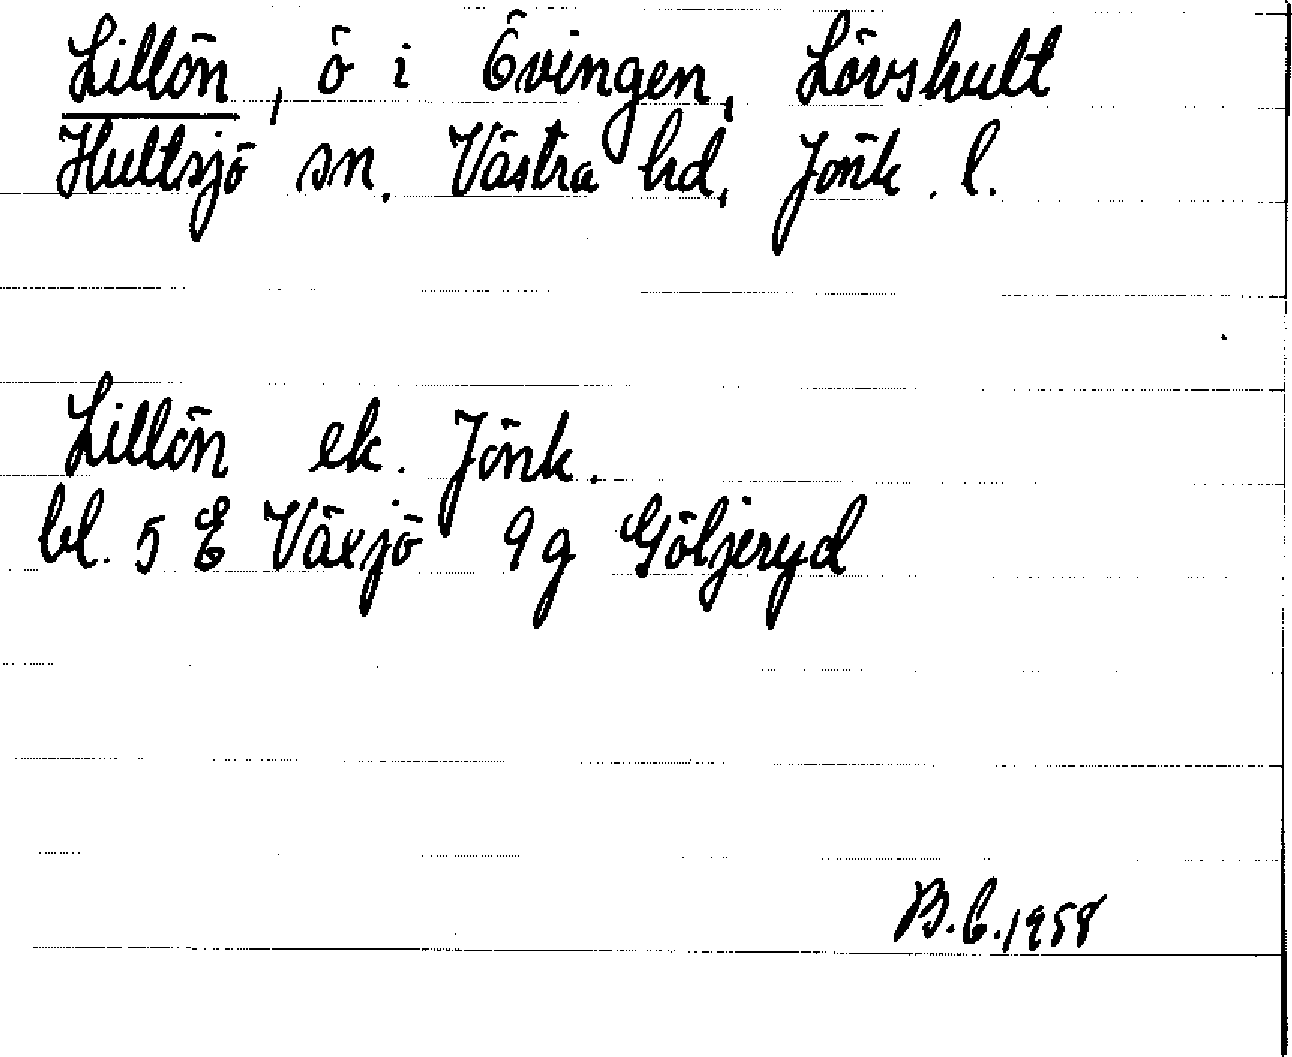 Lillön, ö i Övingen, Lövshult
Hultsjö sn. Västra hd, Jönk. l.
Lillön ek. Jönk.
bl. 5 E Växjö 9 g Göljeryd
B.C. 1958